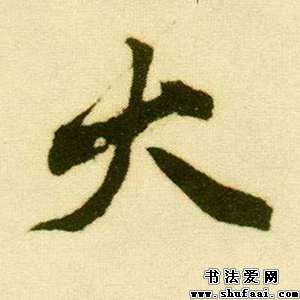 火
书法爱网
www.shufaai.com